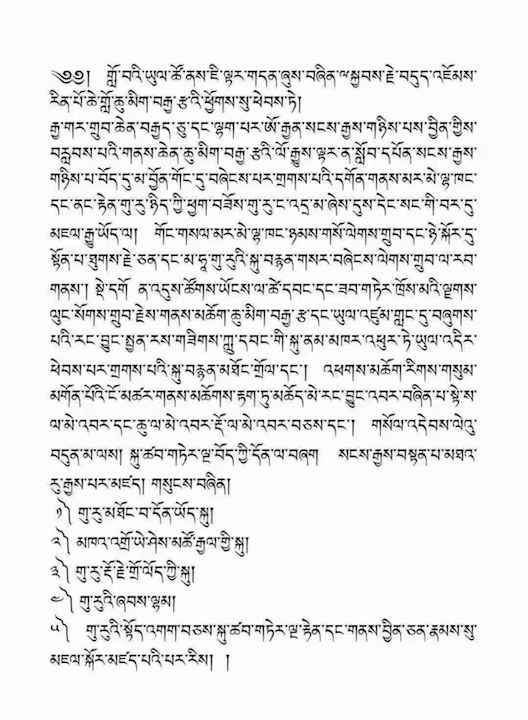 ༄༧༧། གློ་བའི་ཡུལ་ཚོ་ནས་ཇི་ལྟར་གདན་ཞུས་བཞིན་ༀ་སྐྱབས་རྗེ་བདུད་འཇོམས་
རིན་པོ་ཆེ་གློ་ཆུ་མིག་བརྒྱ་རྩ་འི་ཕྱོགས་སུ་ཕེབས་ཏེ།
རྒྱ་གར་གྲུབ་ཆེན་བརྒྱད་ཅུ་དང་ལྷག་པར་ཨོ་རྒྱན་སངས་རྒྱས་གཉིས་པས་བྱིན་གྱིས་
བརླབས་པའི་གནས་ཆེན་ཆུ་མིག་བརྒྱ་རྩའི་ལོ་རྒྱུས་ལྟར་ན་སློབ་དཔོན་སངས་རྒྱས་
གཉིས་པ་བོད་དུ་མ་བྱོན་གོང་དུ་བཞེངས་པར་གྲགས་པའི་དགོན་གནས་མར་མེ་ལྷ་ཁང་
དང་ནང་རྟེན་གུ་རུ་ཉིད་ཀྱི་ཕྱག་བཟོས་གུ་རུ་ང་འདྲ་མ་ཞེས་དུས་དེང་སང་གི་བར་དུ་
མཇལ་རྒྱུ་ཡོད་ལ། གོང་གསལ་མར་མེ་ལྷ་ཁང་ཉམས་གསོ་ལེགས་གྲུབ་དང་ཉེ་སྐོར་དུ་
སྟོན་པ་ཐུགས་རྗེ་ཅན་དང་མ་ཧཱ་གུ་རུའི་སྐུ་བརྙན་གསར་བཞེངས་ལེགས་གྲུབ་ལ་རབ་
གནས། སྡེ་དགོ ན་འདུས་ཚོགས་ཡོངས་ལ་ཚེ་དབང་དང་ཟབ་གཏེར་ཁྲོས་མའི་ལྗགས་
ལུང་སོགས་གྲུབ་རྗེས་གནས་མཆོག་ཆུ་མིག་བརྒྱ་རྩ་དང་ཡུལ་འཛུམ་གླང་དུ་བཞུགས་
པའི་རང་བྱུང་སྤྱན་རས་གཟིགས་ཀླུ་དབང་གི་སྐུ་ནམ་མཁར་འཕུར་ཏེ་ཡུལ་འདིར་
ཕེབས་པར་གྲགས་པའི་སྐུ་བརྙན་མཐོང་གྲོལ་དང་། འཕགས་མཆོག་རིགས་གསུམ་
མགོན་པོའི་ངོ་མཚར་གནས་མཆོགས་རྟག་ཏུ་མཆོད་མེ་རང་བྱུང་འབར་བཞིན་པ་སྟེ་ས་
ལ་མེ་འབར་དང་ཆུ་ལ་མེ་འབར་རྡོ་ལ་མེ་འབར་བཅས་དང་། གསོལ་འདེབས་ལེའུ་
བདུན་མ་ལས། སྐུ་ཚབ་གཏེར་ལྔ་བོད་ཀྱི་དོན་ལ་བཞག སངས་རྒྱས་བསྟན་པ་མཐའ་
རུ་རྒྱས་པར་མཛད། གསུངས་བཞིན།
༡༽ གུ་རུ་མཐོང་བ་དོན་ཡོད་སྐུ།
༢༽ མཁའ་འགྲོ་ཡེ་ཤེས་མཚོ་རྒྱལ་གྱི་སྐུ།
༣༽ གུ་རུ་རྡོ་རྗེ་གྲོ་ལོད་ཀྱི་སྐུ།
༤༽ གུ་རུའི་ཞབས་ལྷམ།
༥༽ གུ་རུའི་སྟོད་འགག་བཅས་སྐུ་ཚབ་གཏེར་ལྔ་རྟེན་དང་གནས་བྱིན་ཅན་རྣམས་སུ་
མཇལ་སྐོར་མཛད་པའི་པར་རིས། །